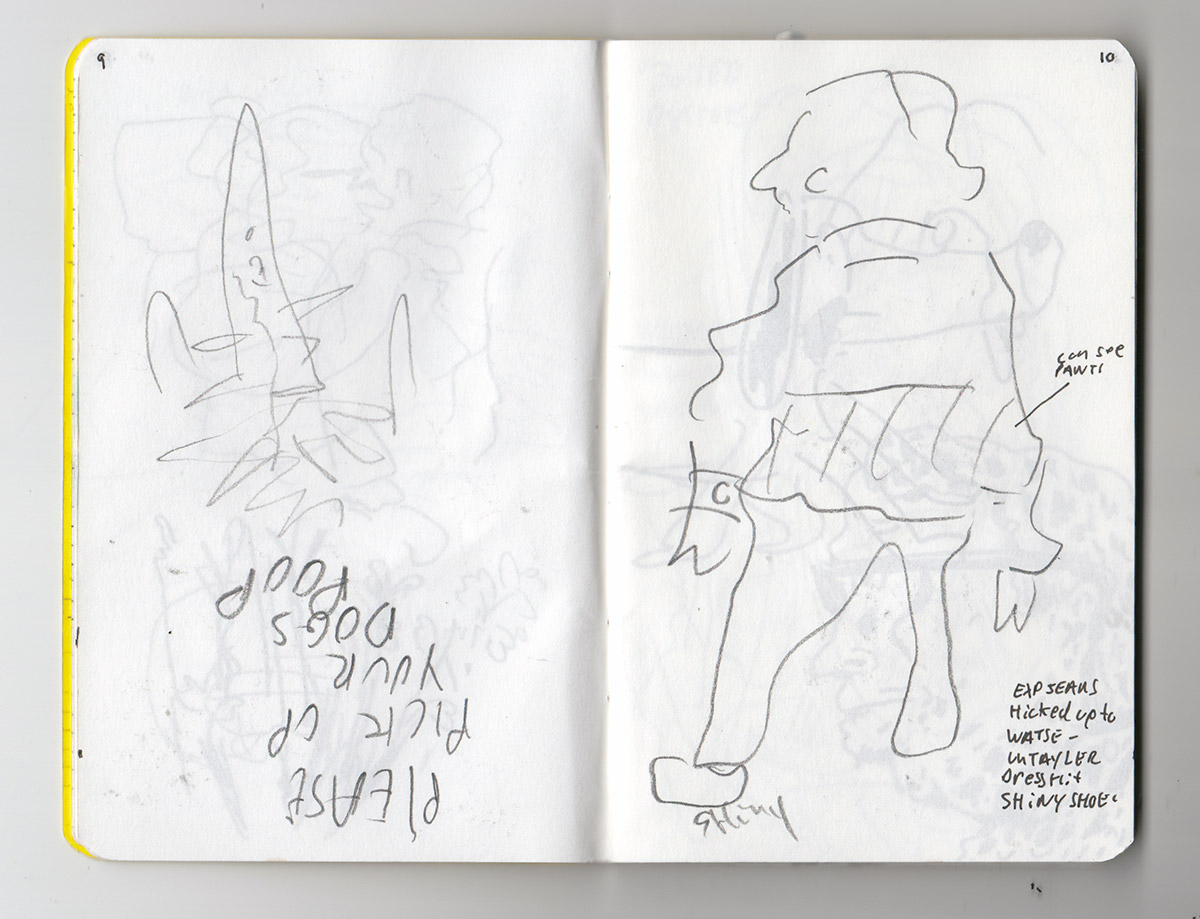 9
PLEASE
PICK UP
YOUR
DOGS
POOP
10
can see
PANTS
EXP JEANS
Hicked up to
WATSE -
UNTAYLER
Dress
SHiNY SHOE
SHiny